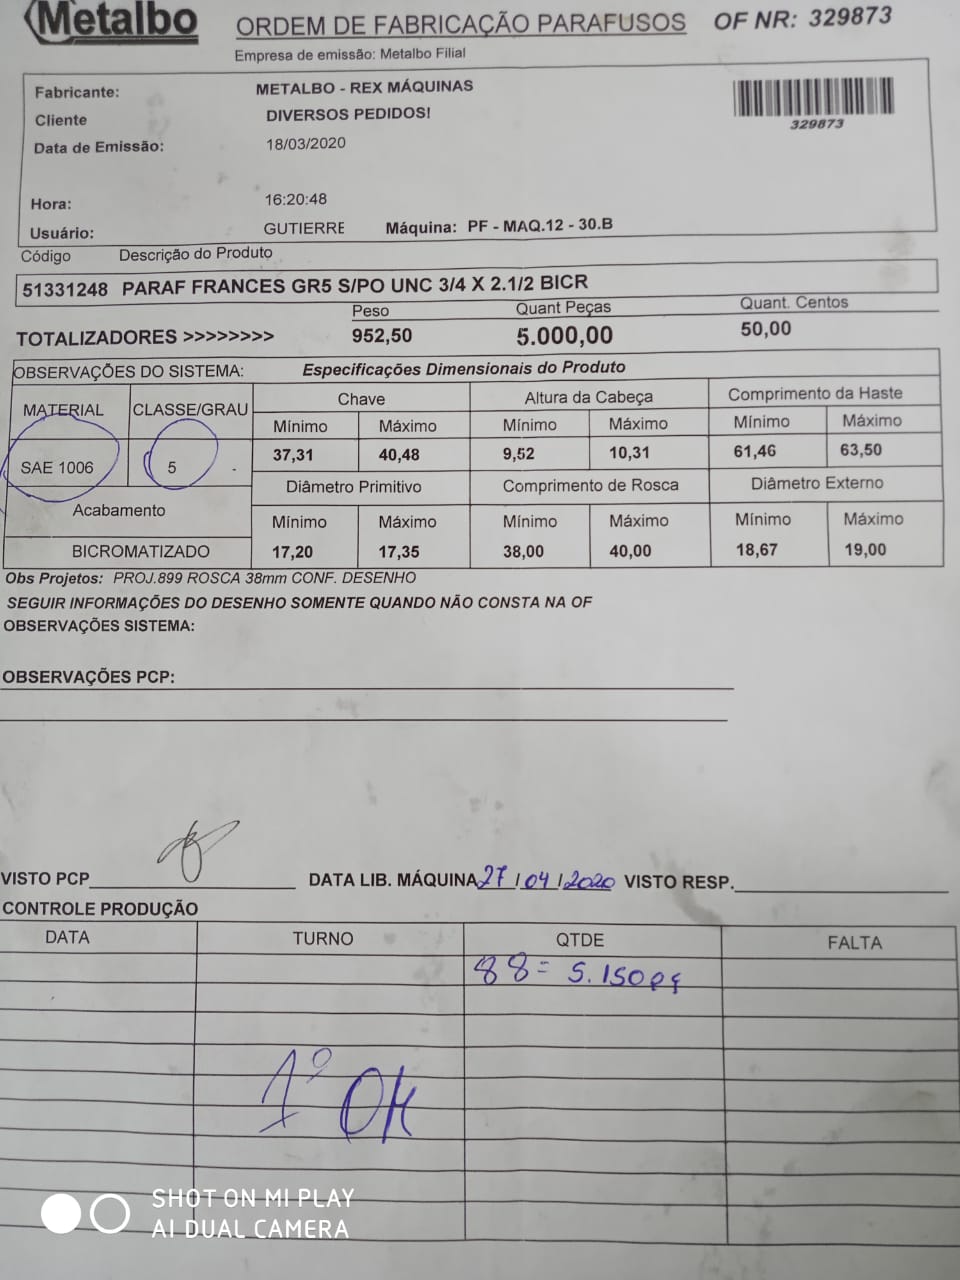 Metalbo
ORDEM DE FABRICAÇÃO PARAFUSOS OF NR: 329873
Empresa de emissão: Metalbo Filial
Fabricante: METALBO - REX MÁQUINAS
Cliente DIVERSOS PEDIDOS!
329873
Data de Emissão: 18/03/2020
Hora: 16:20:48
Usuário: GUTIERRE Máquina: PF - MAQ.12 - 30.B
Código Descrição do Produto
51331248 PARAF FRANCES GR5 S/PO UNC 3/4 X 2.1/2 BICR
Peso Quant Peças Quant. Centos
TOTALIZADORES >>>>>>>> 952,50 5.000,00 50,00
OBSERVAÇÕES DO SISTEMA: Especificações Dimensionais do Produto
MATERIAL CLASSE/GRAU Chave Altura da Cabeça Comprimento da Haste
Mínimo Máximo Mínimo Máximo Mínimo Máximo
SAE 1006 5 - 37,31 40,48 9,52 10,31 61,46 63,50
Acabamento Diâmetro Primitivo Comprimento de Rosca Diâmetro Externo
Mínimo Máximo Mínimo Máximo Mínimo Máximo
BICROMATIZADO 17,20 17,35 38,00 40,00 18,67 19,00
Obs Projetos: PROJ.899 ROSCA 38mm CONF. DESENHO
SEGUIR INFORMAÇÕES DO DESENHO SOMENTE QUANDO NÃO CONSTA NA OF
OBSERVAÇÕES SISTEMA:
OBSERVAÇÕES PCP:
VISTO PCP DATA LIB. MÁQUINA 27/04/2020 VISTO RESP.
CONTROLE PRODUÇÃO
DATA TURNO QTDE FALTA
88 = 5.150 pç
1º OK
SHOT ON MI PLAY
AI DUAL CAMERA